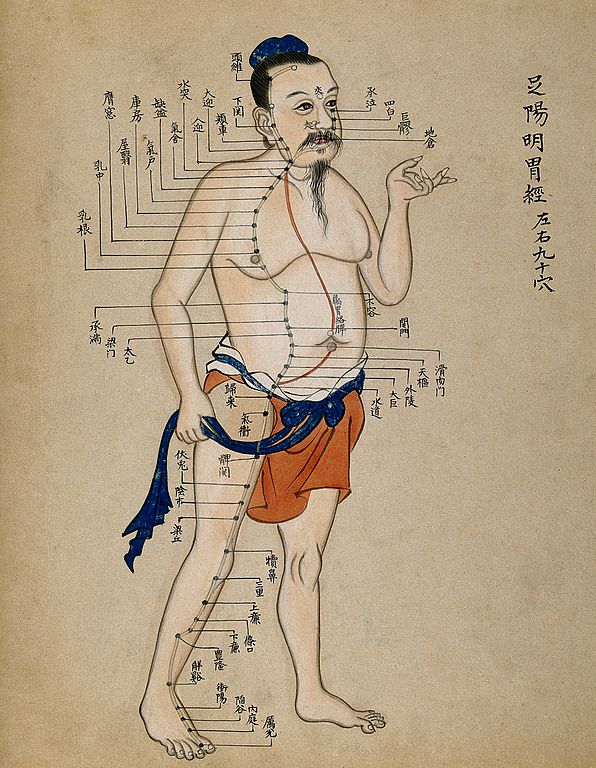 足陽明胃經 左右九十穴
頭維
承泣
四白
巨髎
地倉
下関
頰車
大迎
人迎
水突
氣舍
缺盆
氣戶
庫房
屋翳
膺窓
乳中
乳根
屬胃絡脾
不容
承滿
梁门
関門
太乙
滑肉门
天樞
外陵
太巨
水道
歸來
氣衝
髀関
伏兎
陰市
梁丘
犢鼻
三里
上廉
條口
下廉
豐隆
解谿
衝陽
陷谷
内庭
厲兌